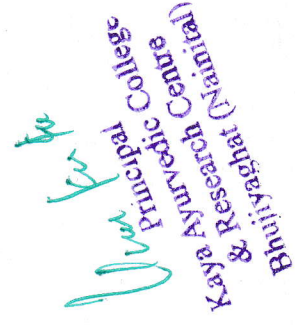 Principal College
Kaya Ayurvedic Centre
& Research Centre
Bhujiyaghat (Nainital)